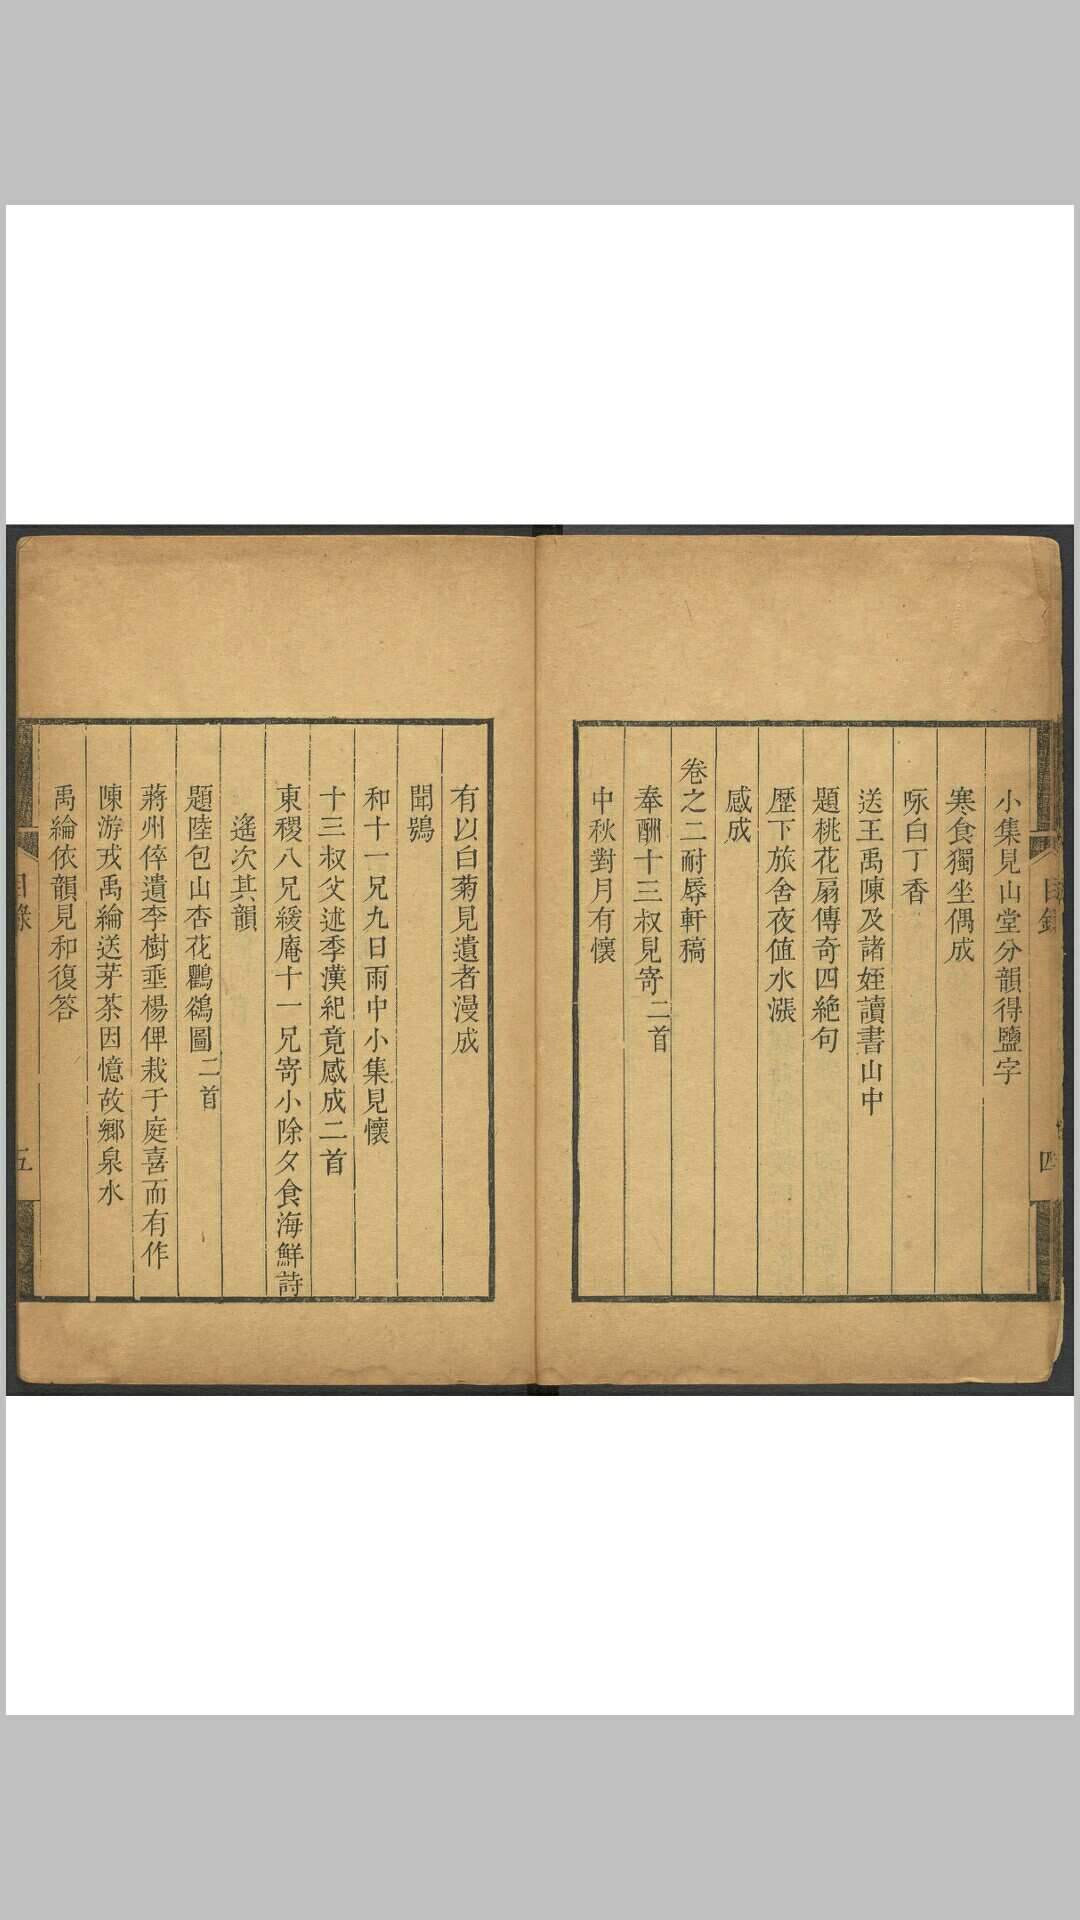 小集見山堂分韻得鹽字
寒食獨坐偶成
咏白丁香
送王禹陳及諸姪讀書山中
題桃花扇傳奇四絶句
歷下旅舍夜值水漲
感成
卷之二耐辱軒稿
奉酬十三叔見寄二首
中秋對月有懷
目錄
四
有以白菊見遺者漫成
聞鴞
和十一兄九日雨中小集見懷
十三叔父述季漢紀竟感成二首
東稷八兄緩庵十一兄寄小除夕食海鮮詩
遙次其韻
題陸包山杏花鸜鵒圖二首
蔣州倅遺李樹垂楊俾栽于庭喜而有作
陳游戎禹綸送芽茶因憶故鄉泉水
禹綸依韻見和復答
目錄
五